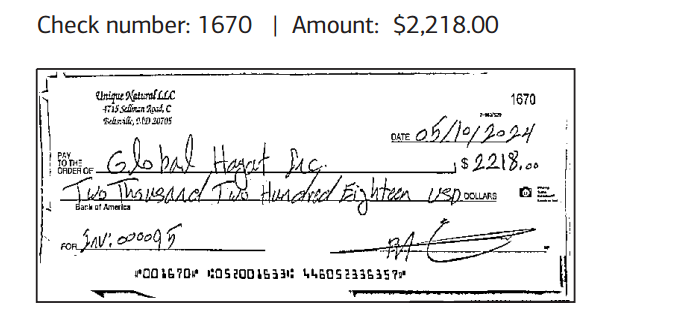 Check number: 1670 | Amount: $2,218.00
Unique Natural LLC
4715 Sellman Road, C
Beltsville, MD 20705
1670
DATE 05/10/2024
PAY
TO THE
ORDER OF Global Hayat Inc. $ 2218.00
Two Thousand Two Hundred Eighteen USD DOLLARS
Bank of America
FOR Inv: 000095
⑈001670⑈ ⑆052001633⑆ 446052336357⑈